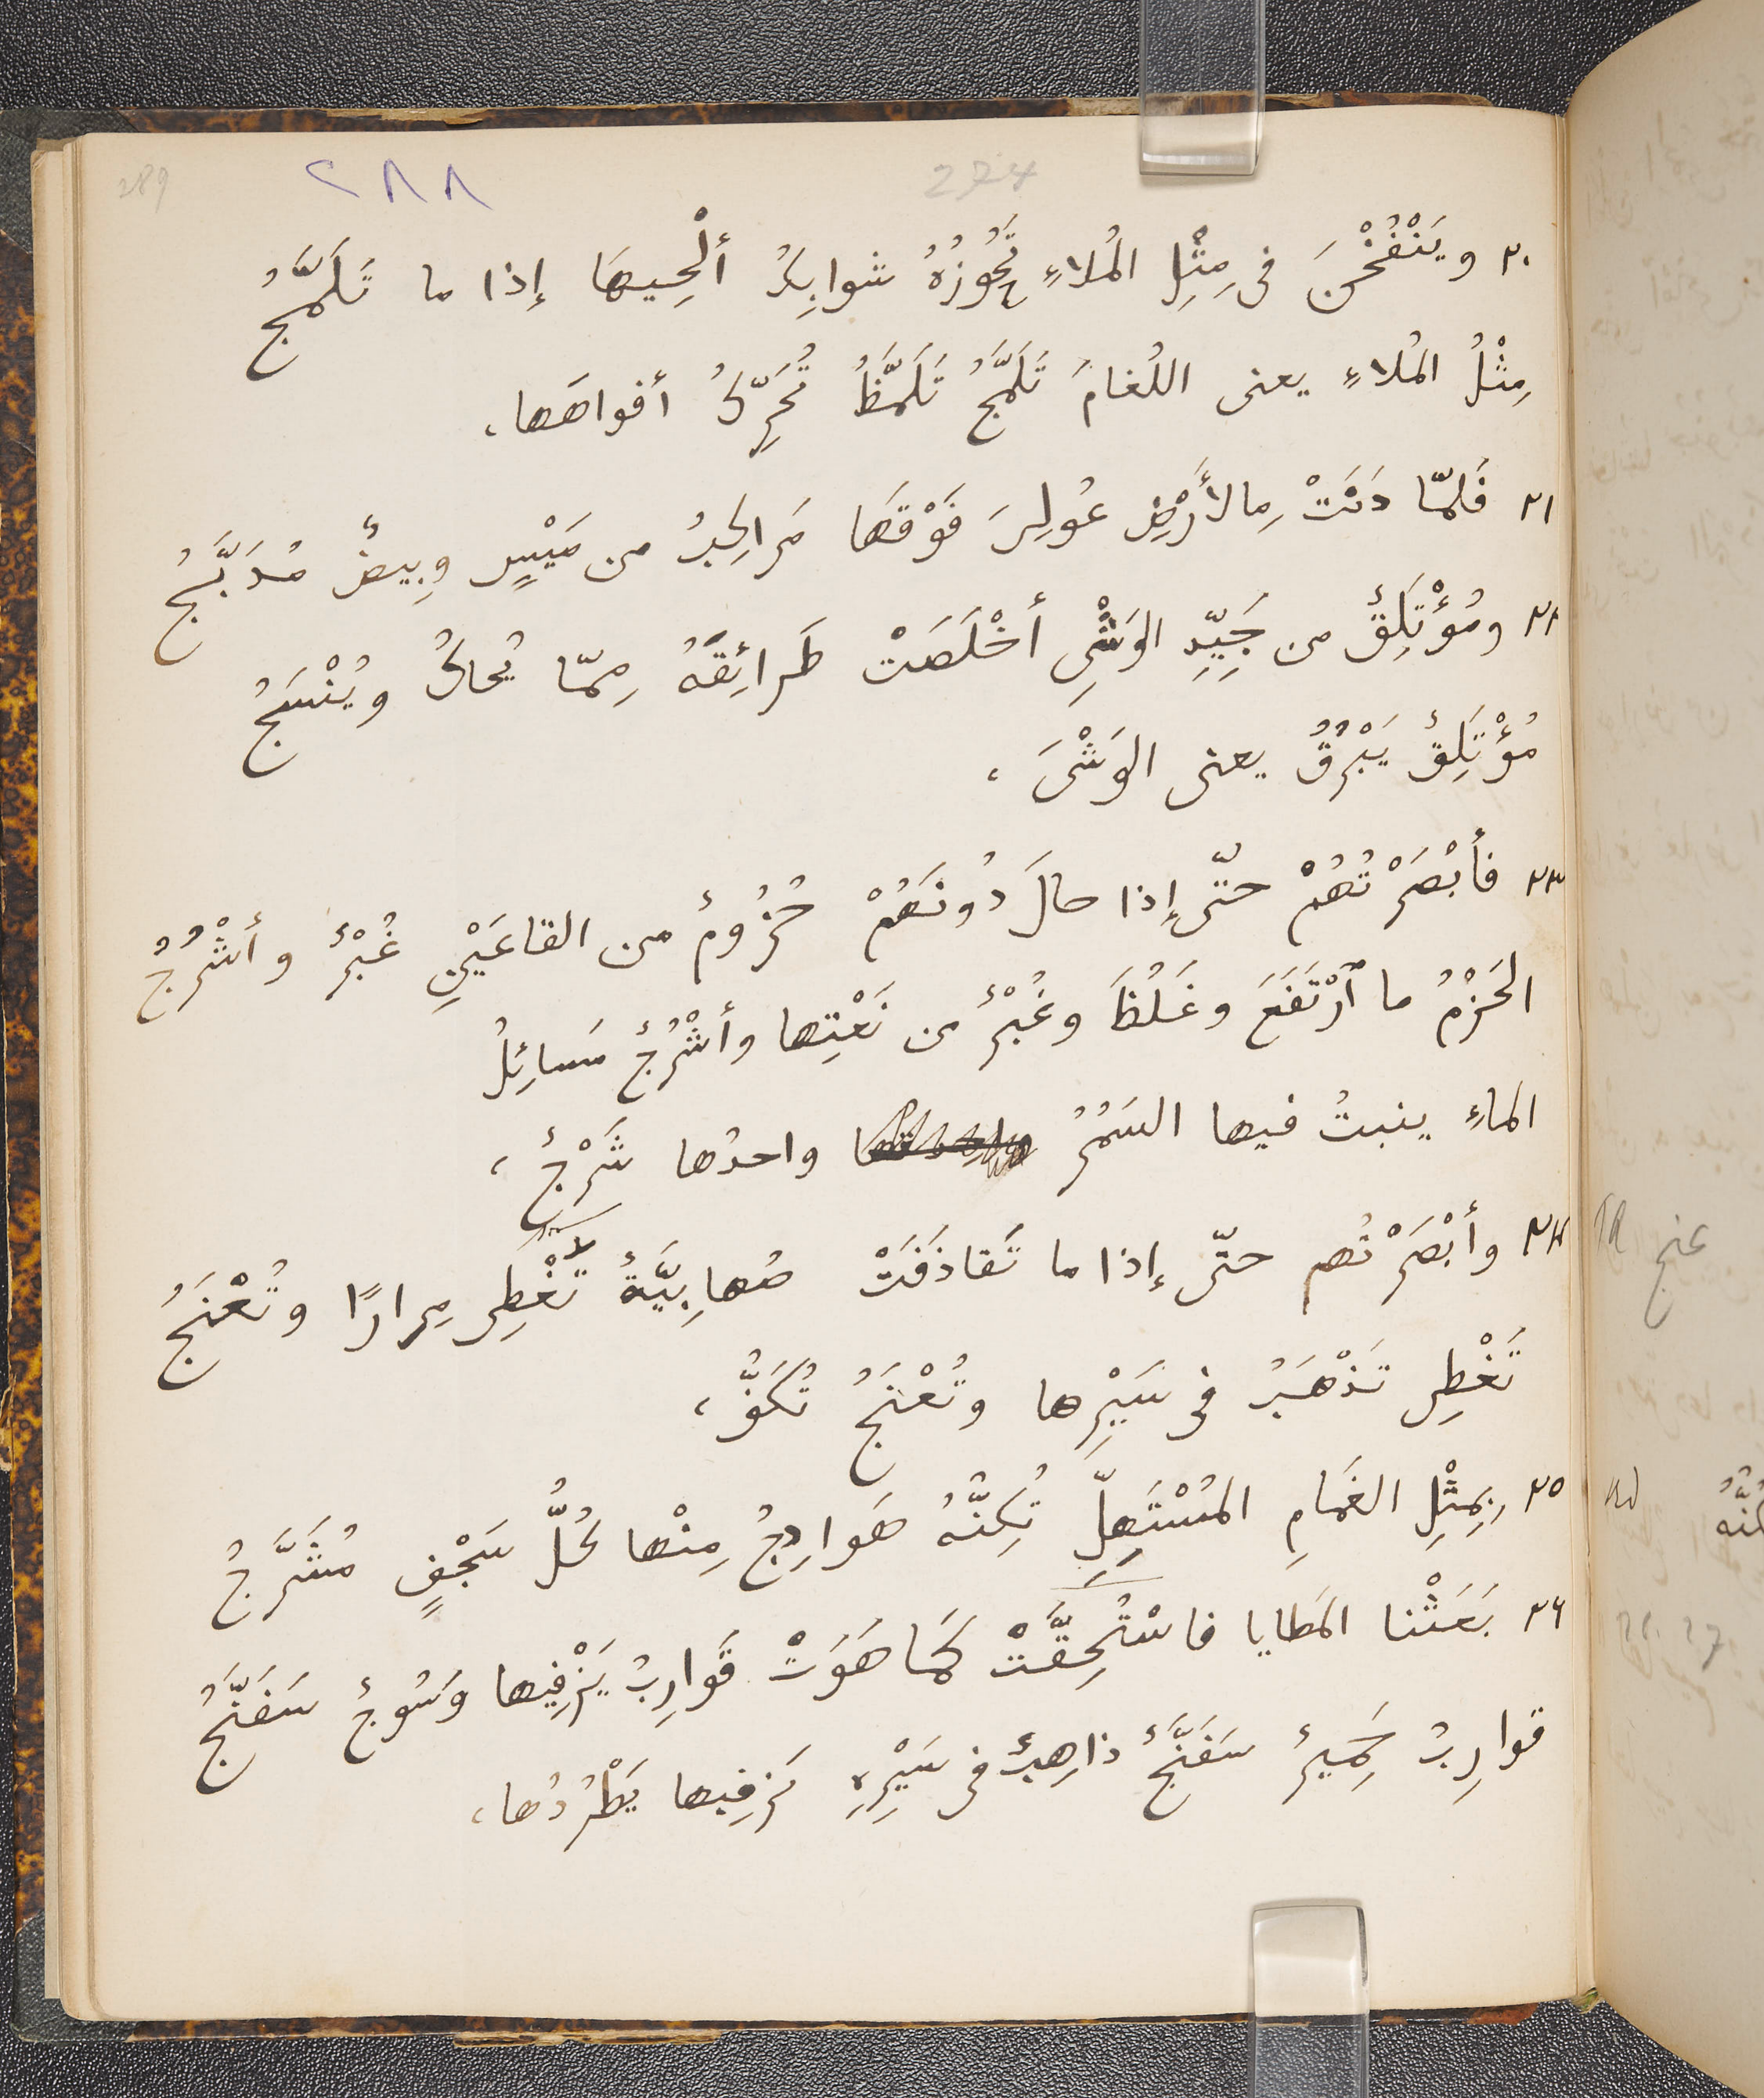 289 ٢٨٨ 274
٢٠ ويَنْفُخْنَ فى مِثْلِ المُلاءِ تَحُوزُهُ شوابِكُ أَلْحِيهَا إذا ما تَلَمَّجُ
مِثْلُ المُلاءِ يعنى اللُغامَ تَلَمَّجُ تَلَمَّظُ تُحَرِّكُ أفواهَها،
٢١ فَلمّا دَنَتْ مِالأَرْضِ عُولِىَ فَوْقَها مَراكِبُ من مَيْسٍ وبِيضٌ مُدَبَّجُ
٢٢ ومُؤْتَلِقٌ من جَيِّدِ الوَشْىِ أخْلَصَتْ طَرائِقَهُ مِمّا يُحاكُ ويُنْسَجُ
مُؤْتَلِقٌ يَبْرُقُ يعنى الوَشْىَ،
٢٣ فأَبْصَرْتُهُمْ حتّى إذا حالَ دُونَهُمْ حُزُومٌ من القاعَيْنِ غُبْرٌ وأشْرُجُ
الحَزْمُ ما ٱرْتَفَعَ وغَلُظَ وغُبْرٌ من نَعْتِها وأشْرُجٌ مَسائِلُ
الماءِ ينبتُ فيها السَمُرُ واحدُها شَرْجٌ،
٢٤ وأبْصَرْتُهم حتّى إذا ما تَقاذَفَتْ صُهابِيَّةٌ تَغْطِى مِرارًا وتُعْنَجُ
تَغْطِى تَذْهَبُ فى سَيْرِها وتُعْنَجُ تُكَفُّ،
٢٥ بِمِثْلِ الغَمامِ المُسْتَهِلِّ تُكِنُّهُ هَوادِجُ مِنْها كُلُّ سَجْفٍ مُشَرَّجُ
٢٦ بَعَثْنا المَطايا فاسْتُحِقَّتْ كَما هَوَتْ قَوارِبُ يَزْفِيها وَسُوجٌ سَفَنَّجُ
قوارِبُ حَمِيرٌ سَفَنَّجٌ ذاهِبٌ فى سَيْرِهِ يَزفِيها يَطْرُدُها،
عنج